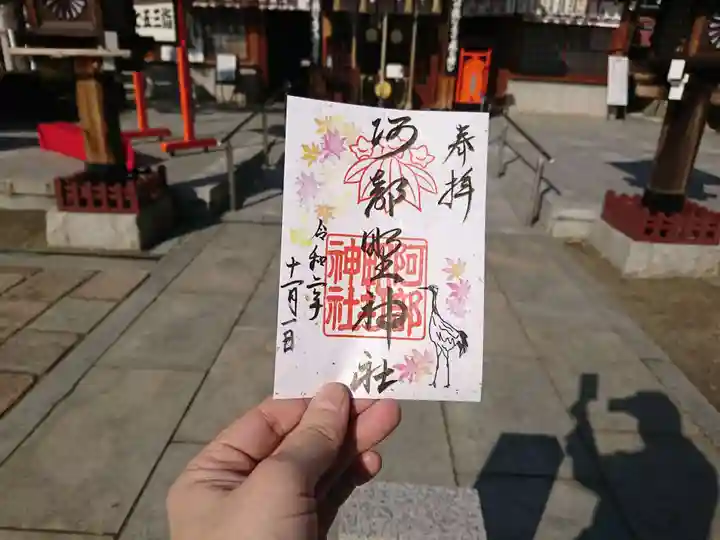 奉拝
阿部野神社
令和二年
十一月一日
阿部
神社
五三